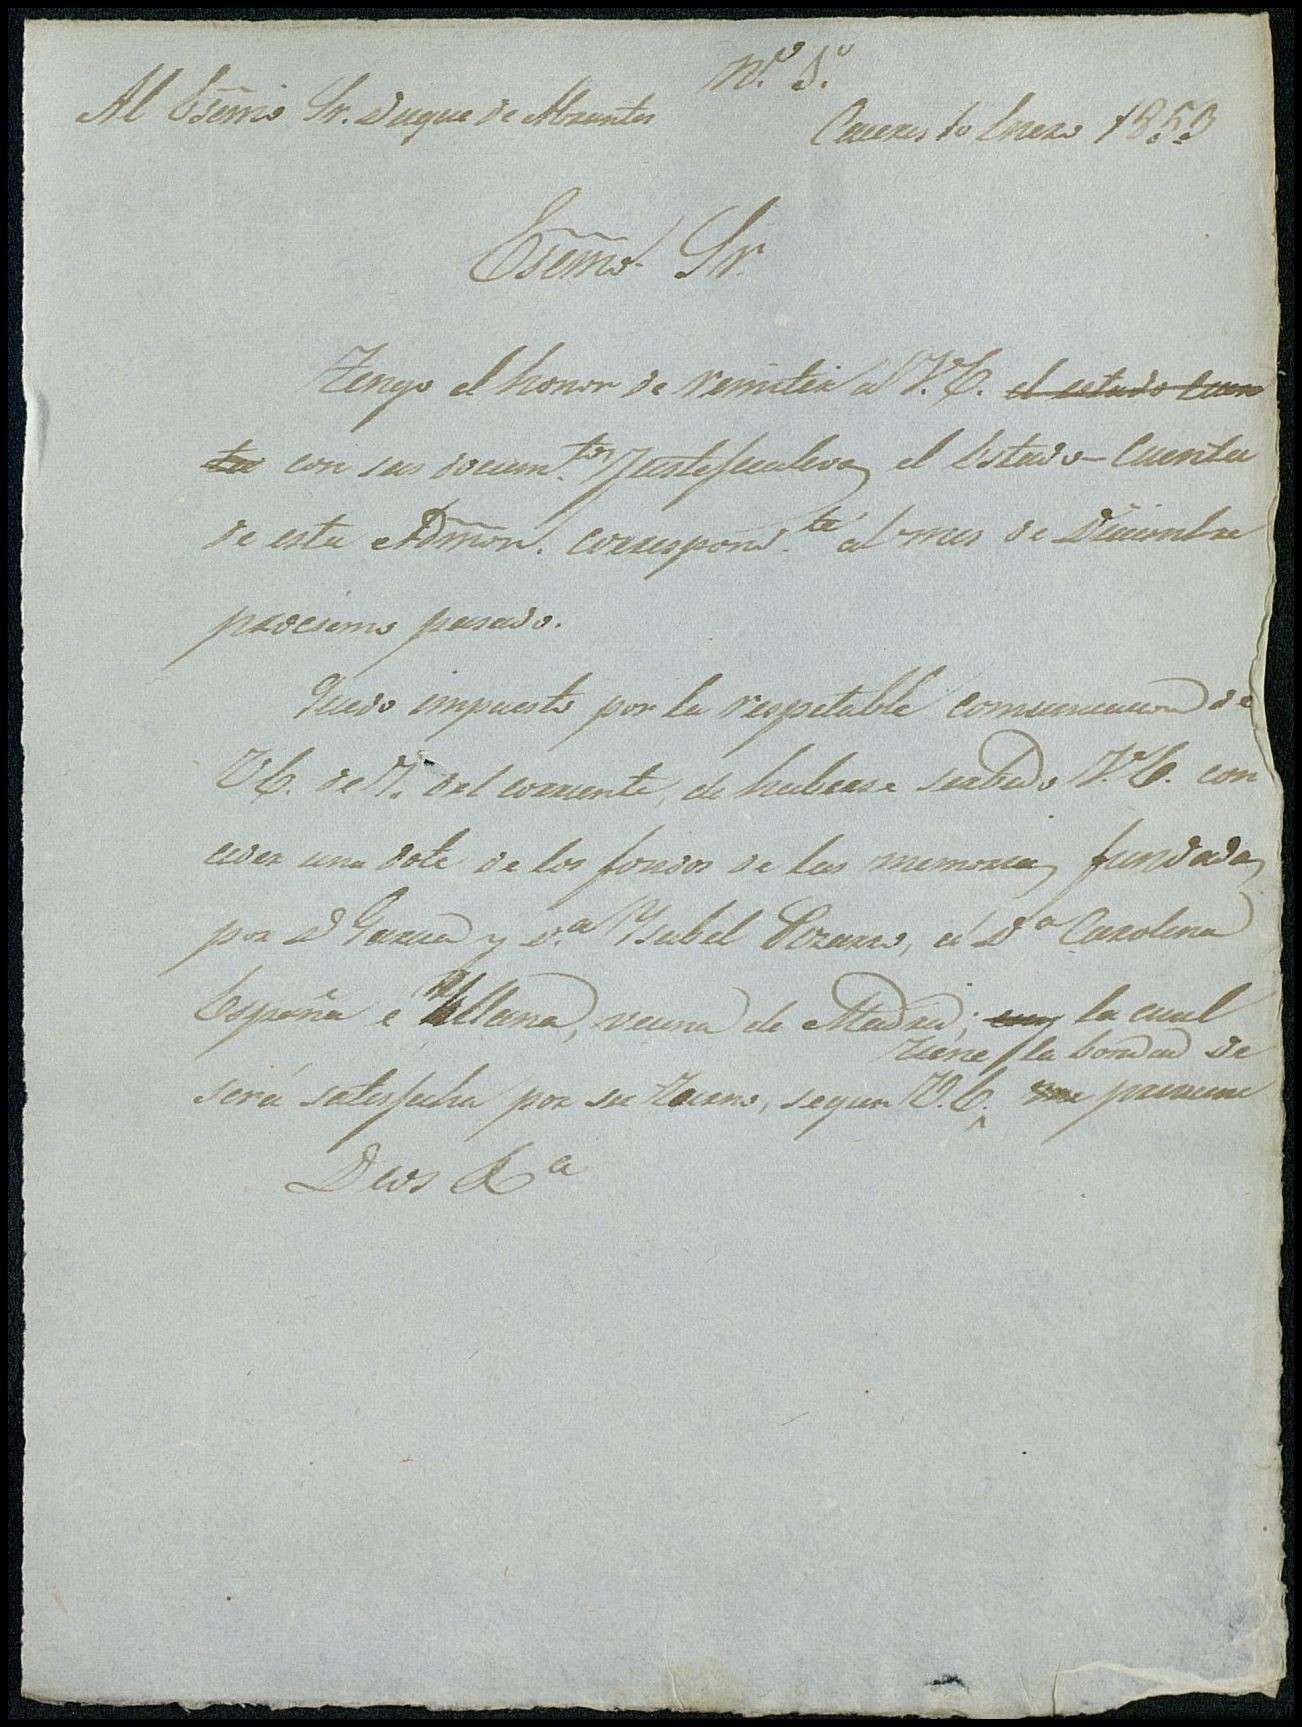 Nº 5º
Al Esẽmo Sr. Duque de Abrantes
Caceres 10 Enero 1853
Esẽmo Sr.
Tengo el honor de remitir á V.E. el estado cuen
ta con sus docum.tos Justificativos el Estado-Cuenta
de esta Admõn. correspond.te al mes de Diciembre
procsimo pasado.
Quedo impuesto por la respetable comunicacion de
V.E. de 7. del corriente, de haberse serbido V.E. con
ceder una dote de los fondos de las memorias fundadas
por D Garcia y D.a Ysabel Pizarro, á D.a Carolina
España é Ullana, vecina de Madrid; la cual
tiene la bondad de
será satisfecha por su turno, segun V.E. prevenirme
Dios &.a